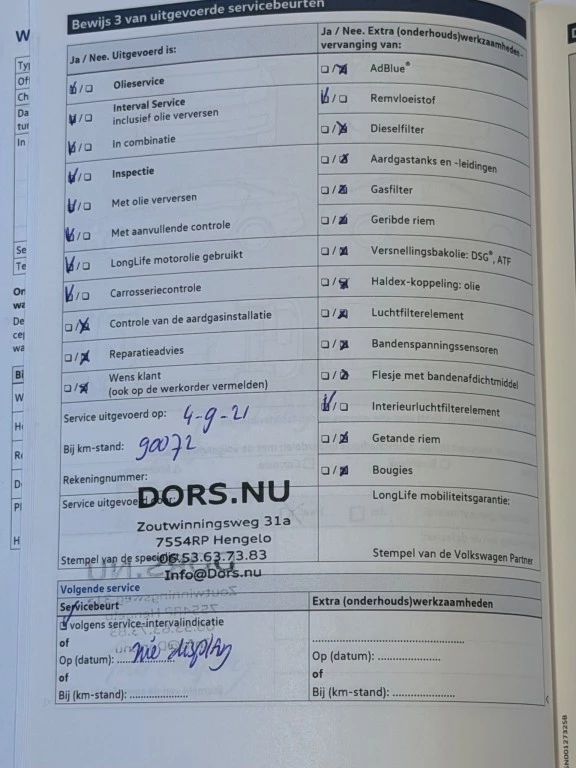 Bewijs 3 van uitgevoerde servicebeurten
Ja / Nee. Uitgevoerd is:
Olieservice
Interval Service
inclusief olie verversen
In combinatie
Inspectie
Met olie verversen
Met aanvullende controle
LongLife motorolie gebruikt
Carrosseriecontrole
Controle van de aardgasinstallatie
Reparatieadvies
Wens klant
(ook op de werkorder vermelden)
Service uitgevoerd op: 4-9-21
Bij km-stand: 90072
Rekeningnummer:
Service uitgevoerd door:
DORS.NU
Zoutwinningsweg 31a
7554RP Hengelo
Stempel van de
06.53.63.73.83
Info@Dors.nu
Ja / Nee. Extra (onderhouds)werkzaamheden-
vervanging van:
AdBlue®
Remvloeistof
Dieselfilter
Aardgastanks en -leidingen
Gasfilter
Geribde riem
Versnellingsbakolie: DSG®, ATF
Haldex-koppeling: olie
Luchtfilterelement
Bandenspanningssensoren
Flesje met bandenafdichtmiddel
Interieurluchtfilterelement
Getande riem
Bougies
LongLife mobiliteitsgarantie:
Stempel van de Volkswagen Partner
Volgende service
Servicebeurt
volgens service-intervalindicatie
of
Op (datum): zie display
of
Bij (km-stand):
Extra (onderhouds)werkzaamheden
Op (datum):
of
Bij (km-stand):